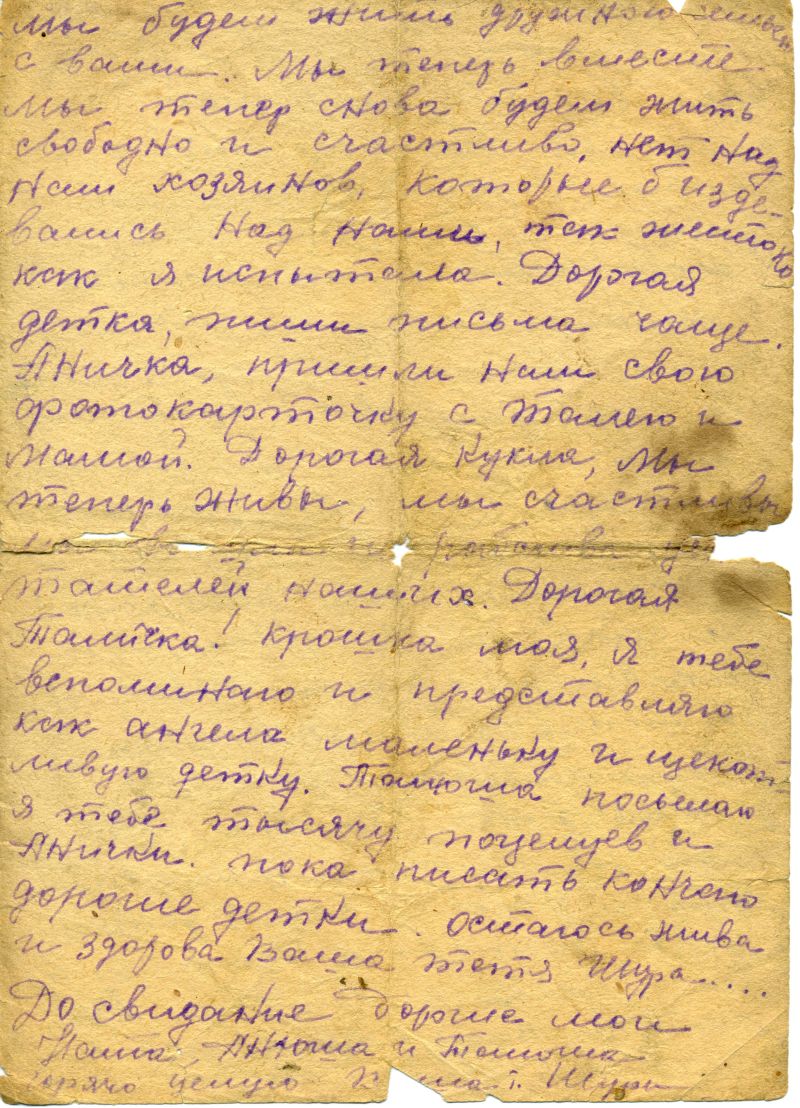 мы будем жить дружной семьёй
с вами. Мы теперь вместе
мы тепер снова будем жить
свободно и счастливо, нет над
нами хозяинов, которые б изде-
вались над нами, так жестоко
как я испытала. Дорогая
детка, пиши письма чаще.
Аничка, пришли нам свою
фотокарточку с Талею и
мамой. Дорогая кукла, мы
теперь живы, мы счастливы
тателей наших. Дорогая
Таличка! крошка моя, я тебе
вспоминаю и представляю
как ангела маленьку и щекот-
ливую детку. Талюша посылаю
я тебе тысячу поцелуев и
Анички. пока писать кончаю
дорогие детки. остаюсь жива
и здорова Ваша тетя Шура.....
До свидание доргие мои
Анюша и Талюша
горячо целую Шура